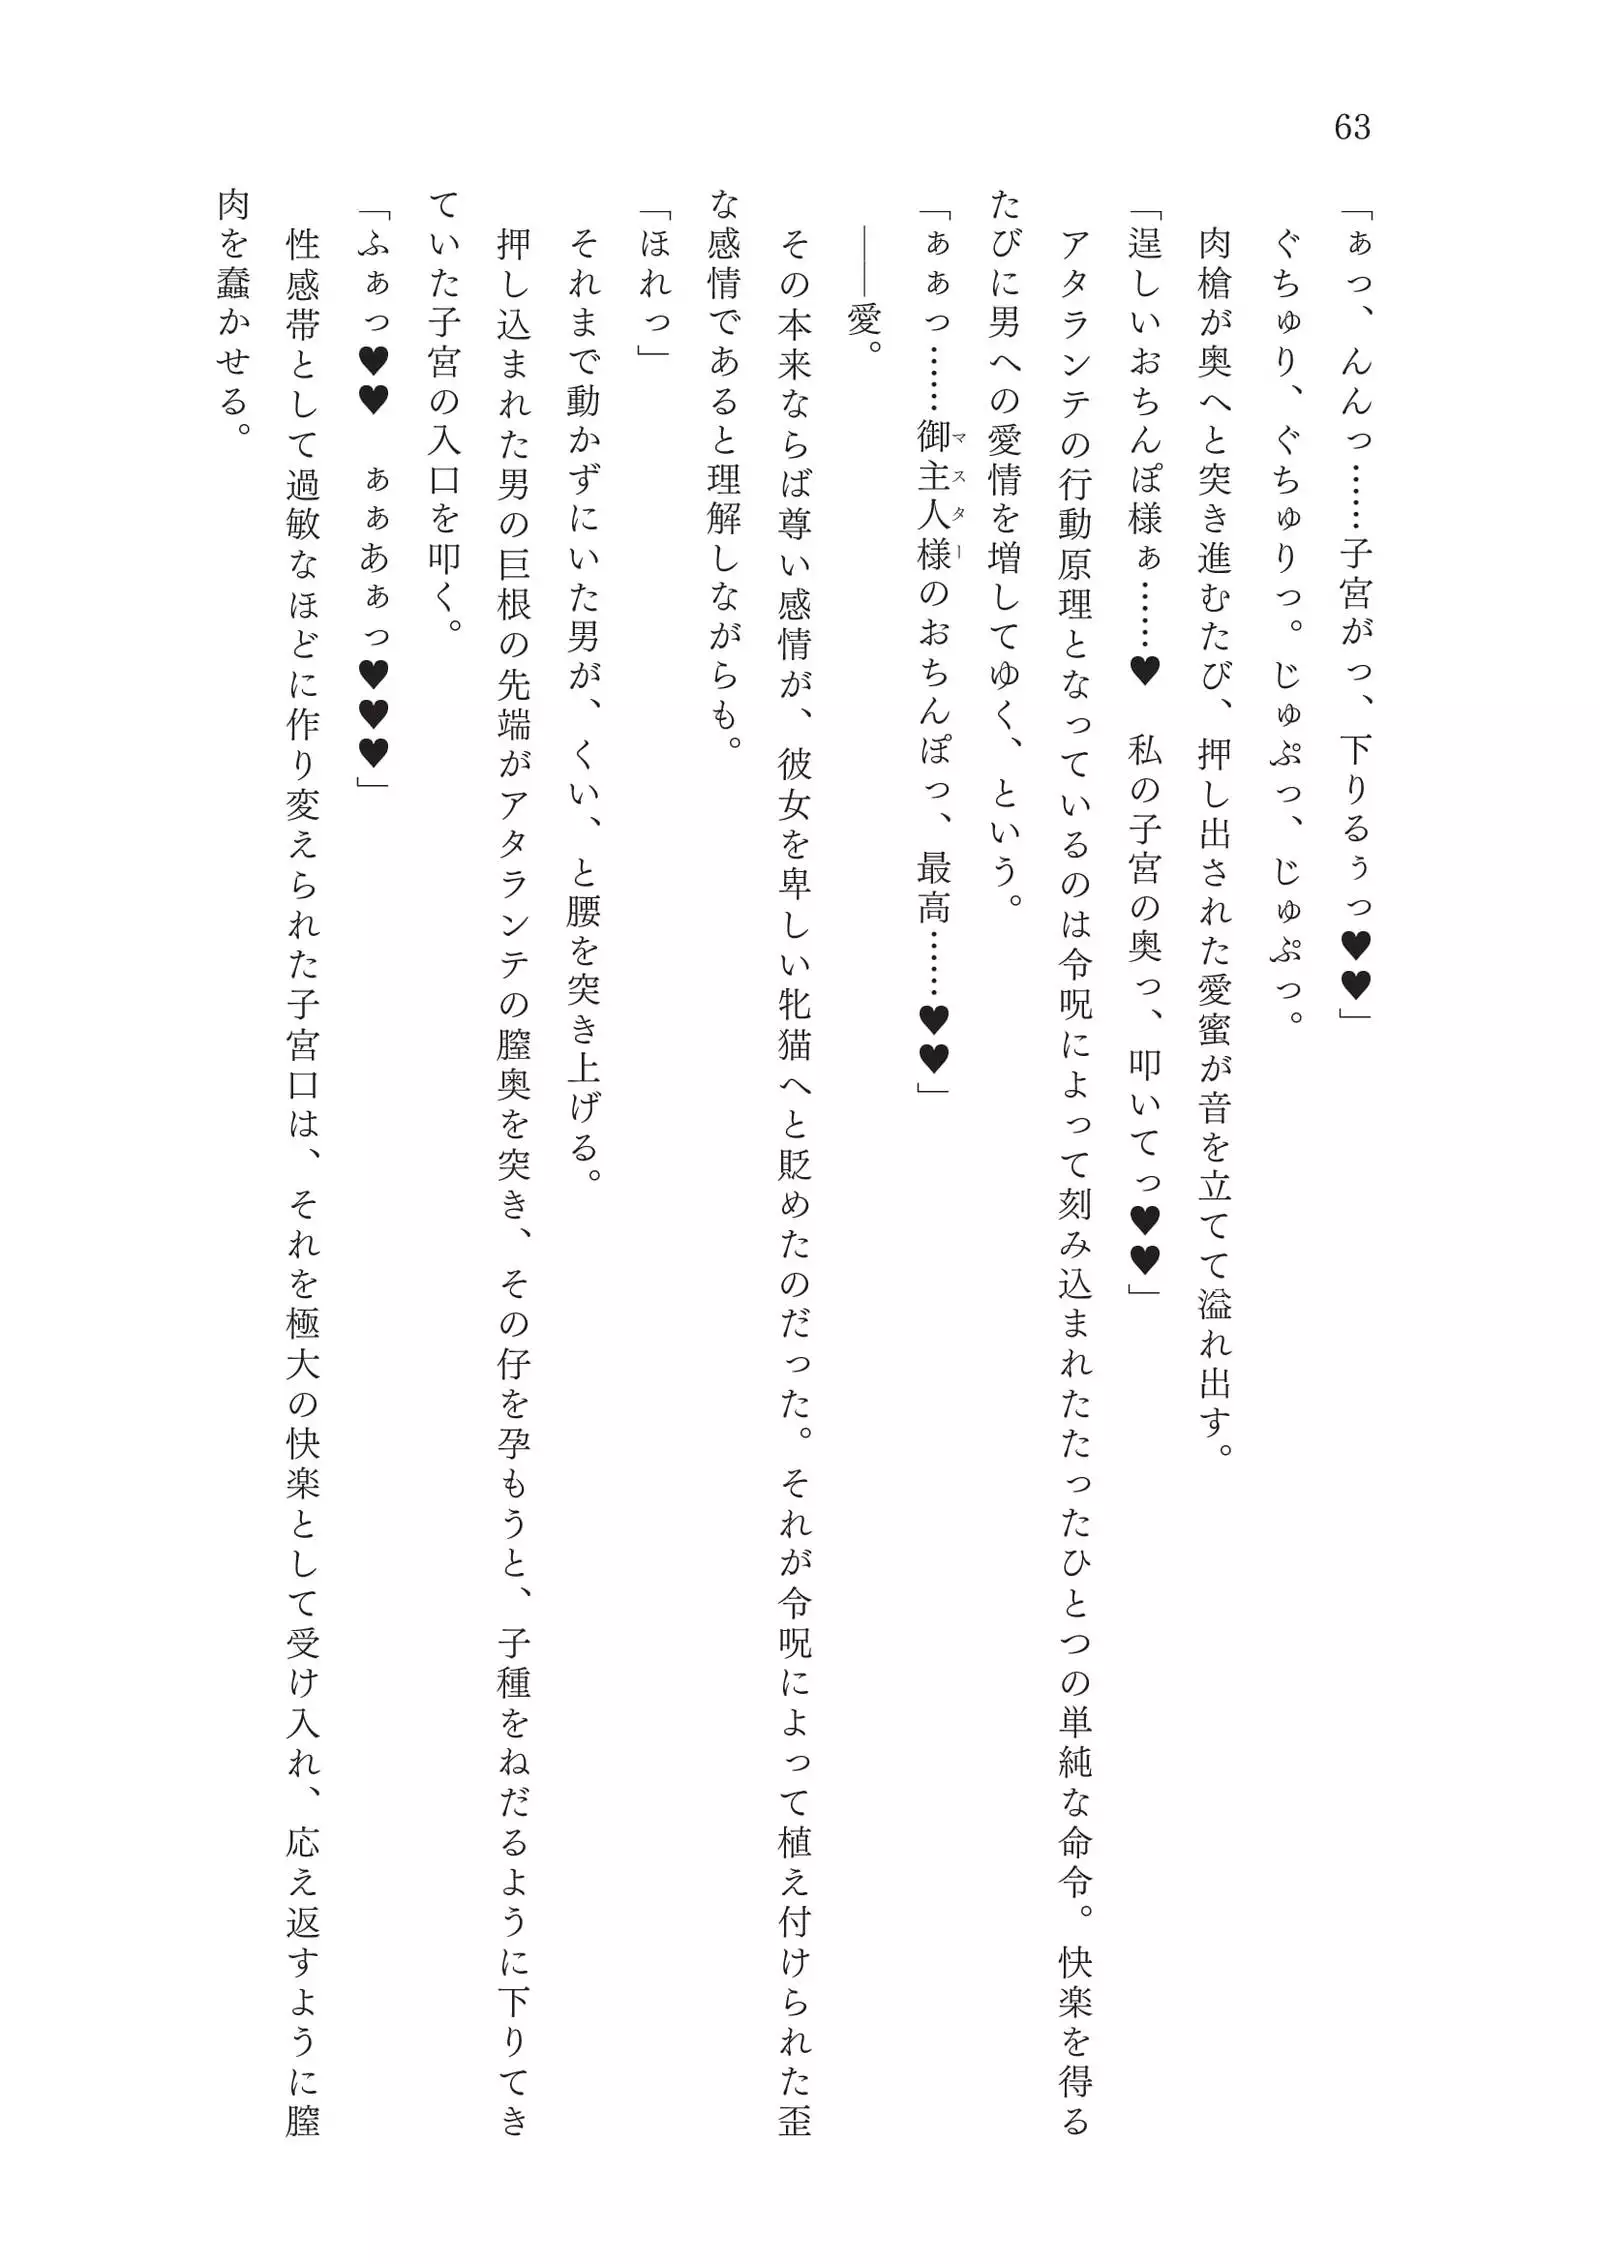 63
「ぁっ、んんっ……子宮がっ、下りるぅっ♥♥」
ぐちゅり、ぐちゅりっ。じゅぷっ、じゅぷっ。
肉槍が奥へと突き進むたび、押し出された愛蜜が音を立てて溢れ出す。
「逞しいおちんぽ様ぁ……♥　私の子宮の奥っ、叩いてっ♥♥」
アタランテの行動原理となっているのは令呪によって刻み込まれたたったひとつの単純な命令。快楽を得る
たびに男への愛情を増してゆく、という。
「ぁぁっ……御主人様マスターのおちんぽっ、最高……♥♥」
――愛。
その本来ならば尊い感情が、彼女を卑しい牝猫へと貶めたのだった。それが令呪によって植え付けられた歪
な感情であると理解しながらも。
「ほれっ」
それまで動かずにいた男が、くい、と腰を突き上げる。
押し込まれた男の巨根の先端がアタランテの膣奥を突き、その仔を孕もうと、子種をねだるように下りてき
ていた子宮の入口を叩く。
「ふぁっ♥♥　ぁぁあぁっ♥♥♥」
性感帯として過敏なほどに作り変えられた子宮口は、それを極大の快楽として受け入れ、応え返すように膣
肉を蠢かせる。